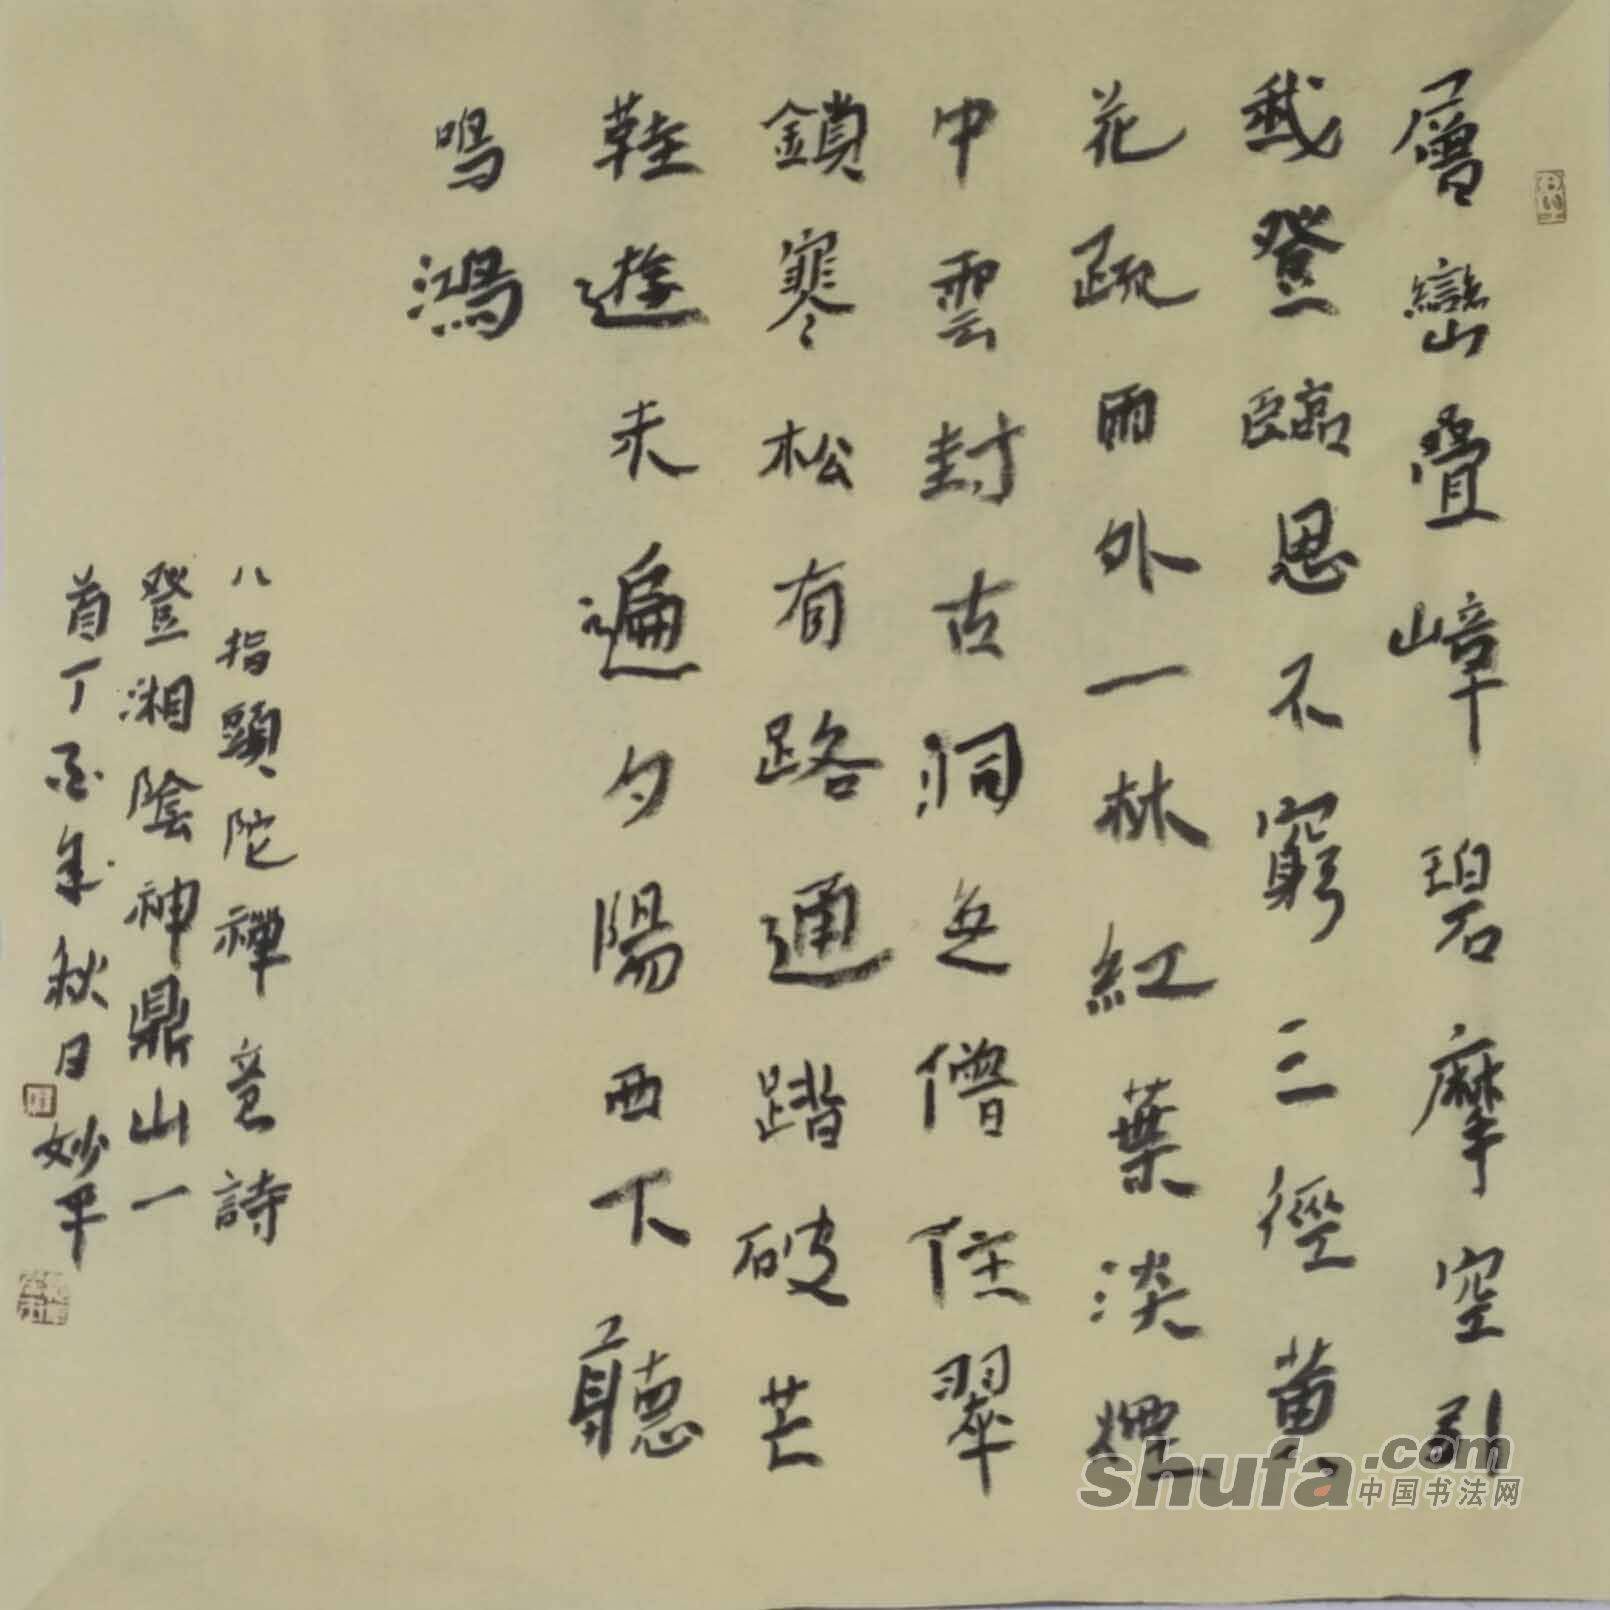 層巒疊嶂碧摩空引
我登臨思不窮三徑黃
花疏雨外一林紅葉淡煙
中雲封古洞無僧住翠
鎖寒松有路通踏破芒
鞋遊未遍夕陽西下聽
鳴鴻
八指頭陀禪意詩
登湘陰神鼎山一
首丁酉年秋日妙平
shufa.com
中国书法网